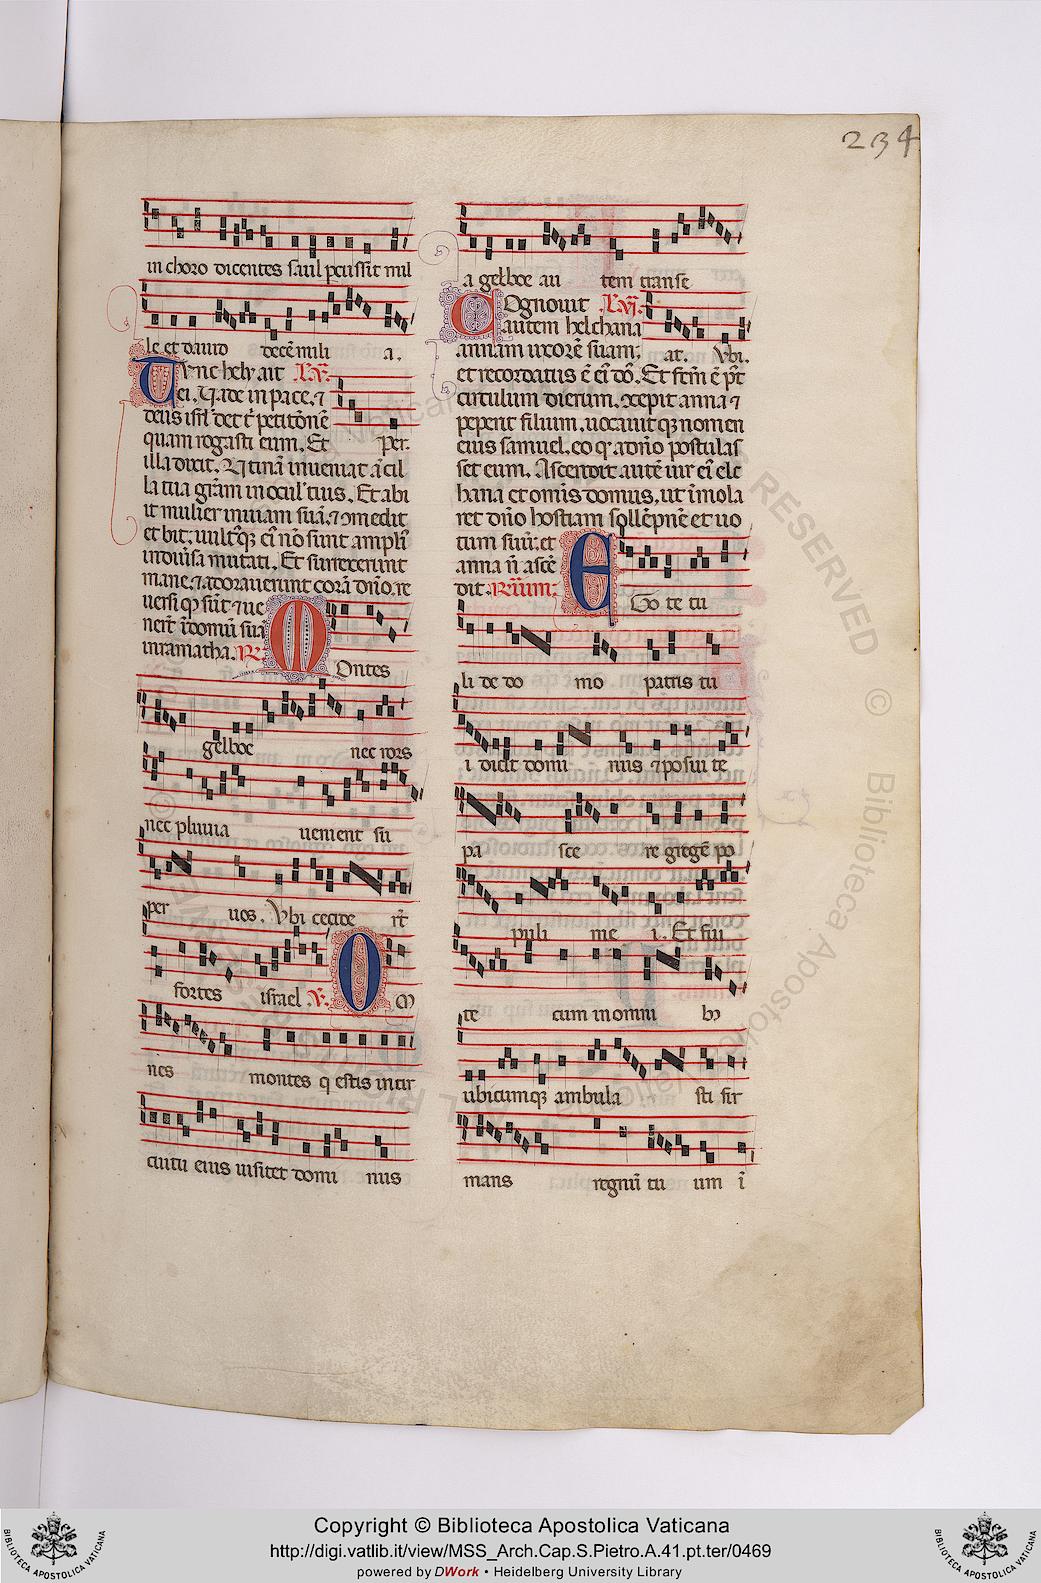 234
in choro dicentes saul pcussit mil
le et dauid decē mili a.
Tvnc hely ait L.v.
ei. Uade in pace. ⁊
deus isrl̄ det t̄ petitōnē
quam rogasti eum. Et per.
illa dixit. Utinā inueniat ācil
la tua grām in ocul' tuis. Et abi
it mulier in uiam suā. ⁊ ↄmedit
et bit: uult'q; eī nō sunt ampli'
in diūsa mutati. Et surrexerunt
mane. ⁊ adorauerunt corā dn̄o. re
uersi q; sūt ⁊ ue
nert̄ ī domū suā
in ramatha. R.
Montes
gelboe nec rors
nec pluuia uenient sū
per uos. Vbi cecide rt̄
fortes israel. V. Om
nes montes q̄ estis in cir
cuitu eius uisitet domi nus
a gelboe au tem transe
Cognouit L.vj.
autem helchana
annam uxorē suam: at. Vbi.
et recordatus ē eī do. Et ftm̄ ē pt̄
circulum dierum. ↄcepit anna ⁊
peperit filium. uocauit q; nomen
eius samuel. eo q' a dn̄o postulas
set eum. Ascendit autē uir eī elc
hana et omīs domus. ut īmola
ret dn̄o hostiam sollēpnē et uo
tum suū: et
anna n̄ ascē
dit. Rūm:
Ego te tu
li de do mo patris tu
i dicit domi nus ⁊ posui te
pa sce re gregē po
puli me i. Et fui
te cum in omni b;
ubicumq; ambula sti fir
mans regnū tu um ī
ALL RIGHTS RESERVED © Biblioteca Apostolica Vaticana
Copyright © Biblioteca Apostolica Vaticana
http://digi.vatlib.it/view/MSS_Arch.Cap.S.Pietro.A.41.pt.ter/0469
powered by DWork • Heidelberg University Library
BIBLIOTECA APOSTOLICA VATICANA
BIBLIOTECA APOSTOLICA VATICANA